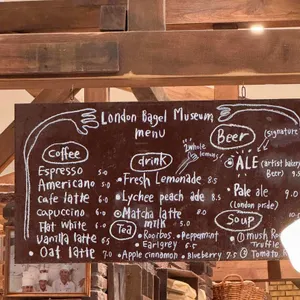 London Bagel Museum
menu
Coffee
Espresso 5.0
Americano 5.0
cafe latte 6.0
cappuccino 6.0
flat white 6.0
Vanilla latte 6.5
Oat latte 7.0
drink
2whole lemons
Fresh Lemonade 8.5
Lychee peach ade 8.5
Matcha latte 8.0
milk 5.0
Tea
Rooibos Peppermint
Earlgrey 6.5
Apple cinnamon Blueberry 7.5
Beer
(signature
ALE (artist bakery
Beer) 9.5
Pale ale 9.0
(London pride)
Soup
① mush Ro
Truffle
② Tomato